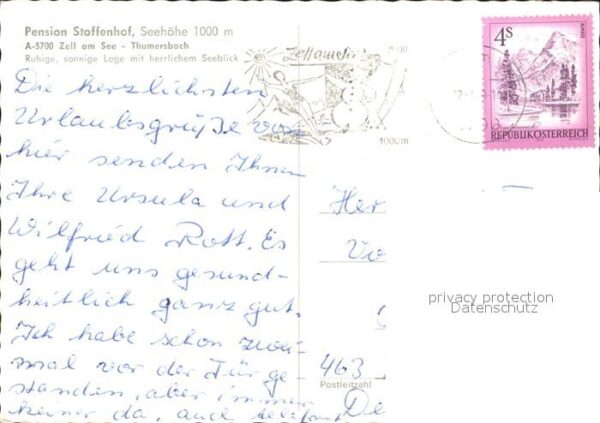 Pension Stoffenhof, Seehöhe 1000 m
A-5700 Zell am See - Thumersbach
Ruhige, sonnige Lage mit herrlichem Seeblick
Die herzlichsten
Urlaubsgrüße von
hier senden Ihnen
Ihre Ursula und
Wilfried Rott. Es
geht uns gesund-
heitlich ganz gut.
Ich habe schon zwei-
mal vor der Tür ge-
standen, aber immer
keiner da, auch telefon
Zell am See
2000 m
4S
ALMSEE
REPUBLIK ÖSTERREICH
Her
Vo
463
Postleitzahl
De
privacy protection
Datenschutz